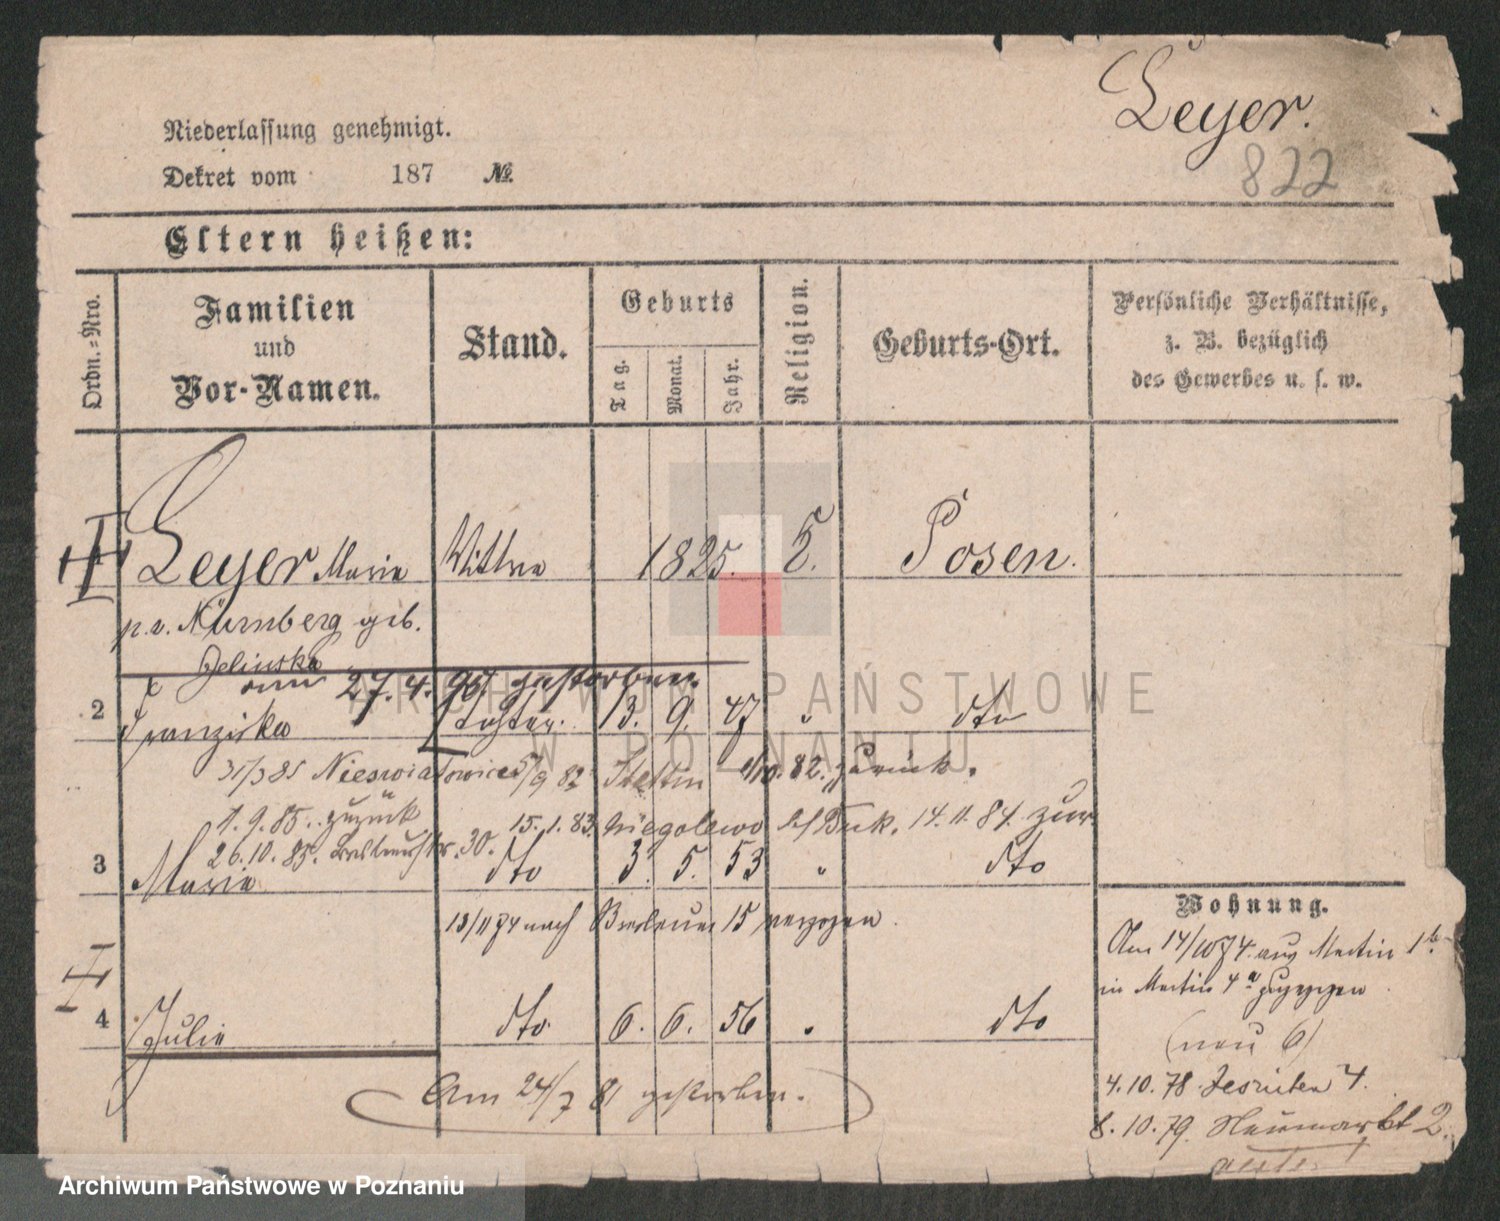 Leyer.
822
Niederlassung genehmigt.
Dekret vom 187 №
Eltern heißen:
Ordn.=Nro.
Familien
und
Vor-Namen.
Stand.
Geburts
Tag.
Monat.
Jahr.
Religion.
Geburts-Ort.
Persönliche Verhältnisse,
z. B. bezüglich
des Gewerbes u. s. w.
Leyer Marie Wittwe 1825. Posen.
p.v. Nürnberg geb.
am 27.4.96 gestorben.
2 Franziska Tochter. 13. 9. 47 " dto
31/3 85 5/9 82 Stettin 1/10. 82. zurück.
1.9.85. zurück 15.1.83. Niegolewo b/Buk. 14.11.84. zur
26.10.85. 30.
3 Marie dto 3. 5. 53 " dto
13/11 74 nach Breslauer 15 verzogen.
4 Julie dto. 6. 6. 56 " dto
Am 24/7 81 gestorben.
Wohnung.
Am 14/10 74. aus Martin 1b
in Martin 4a zugezogen
(neu 6)
4.10.78 Jesuiten 4.
8.10.79. Neumarkt 2.
ARCHIWUM PAŃSTWOWE
W POZNANIU
Archiwum Państwowe w Poznaniu